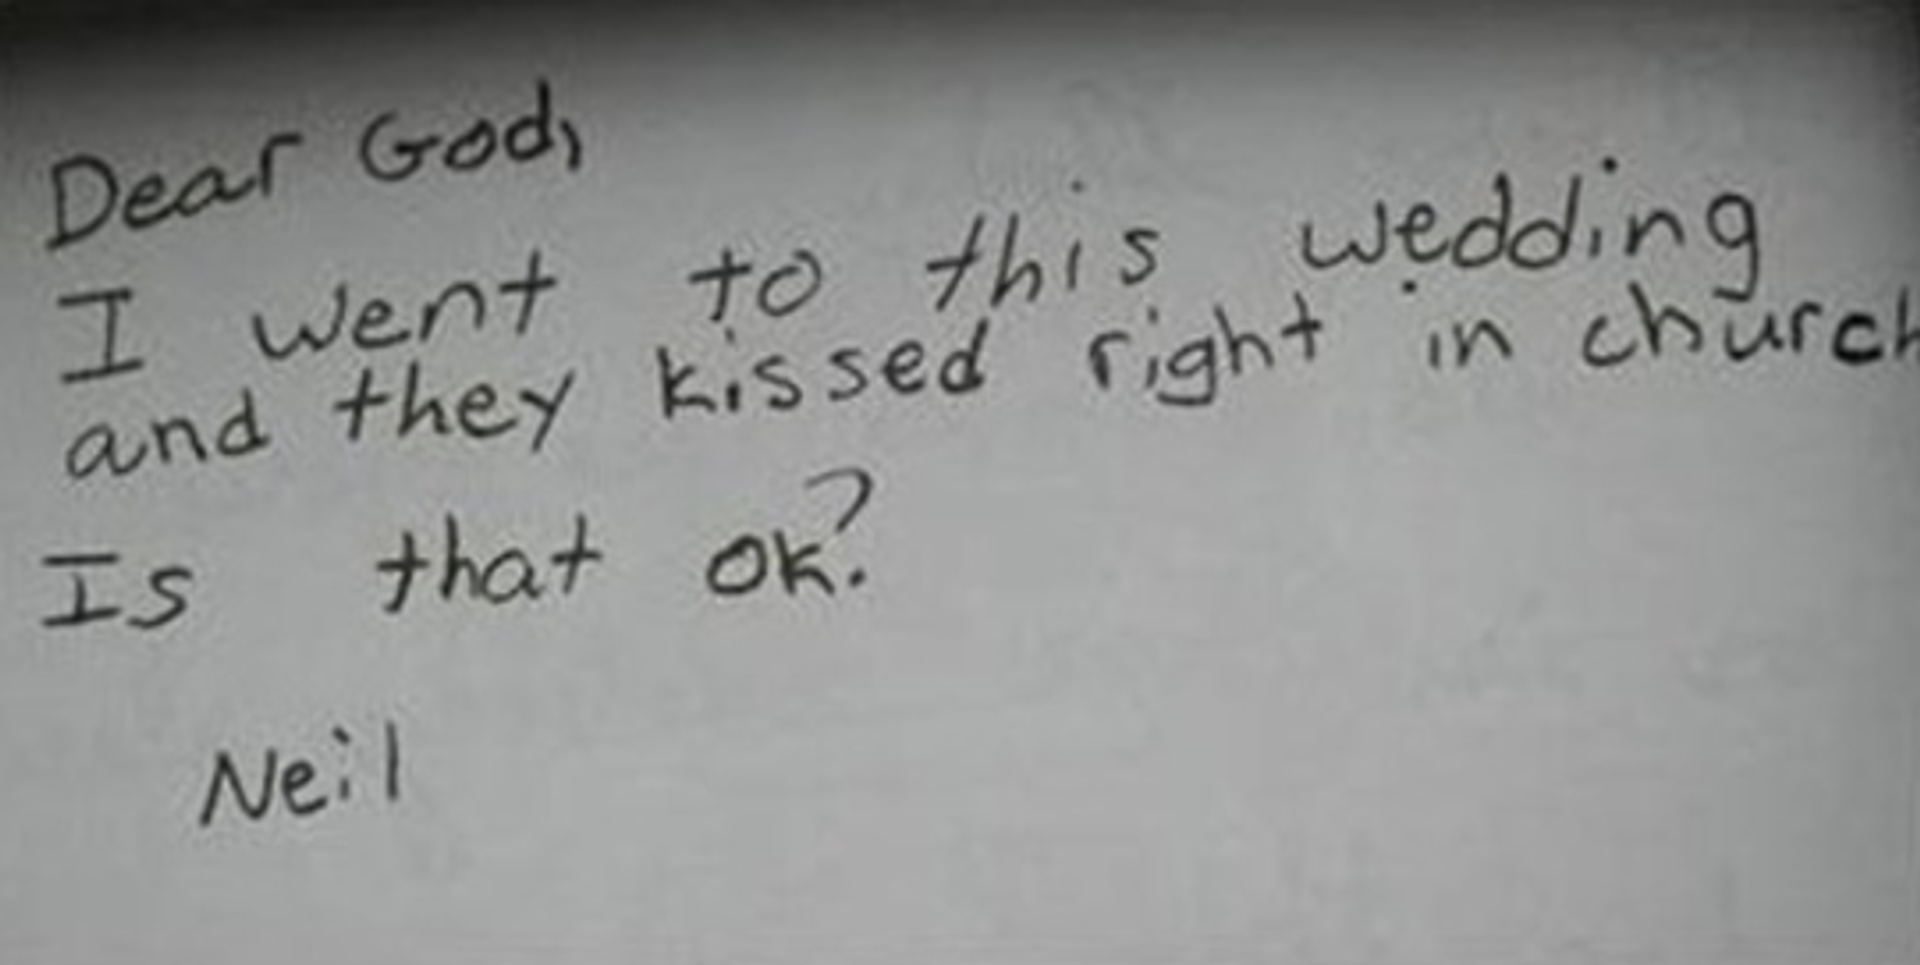 Dear God,
I went to this wedding
and they kissed right in church
Is that ok?
Neil